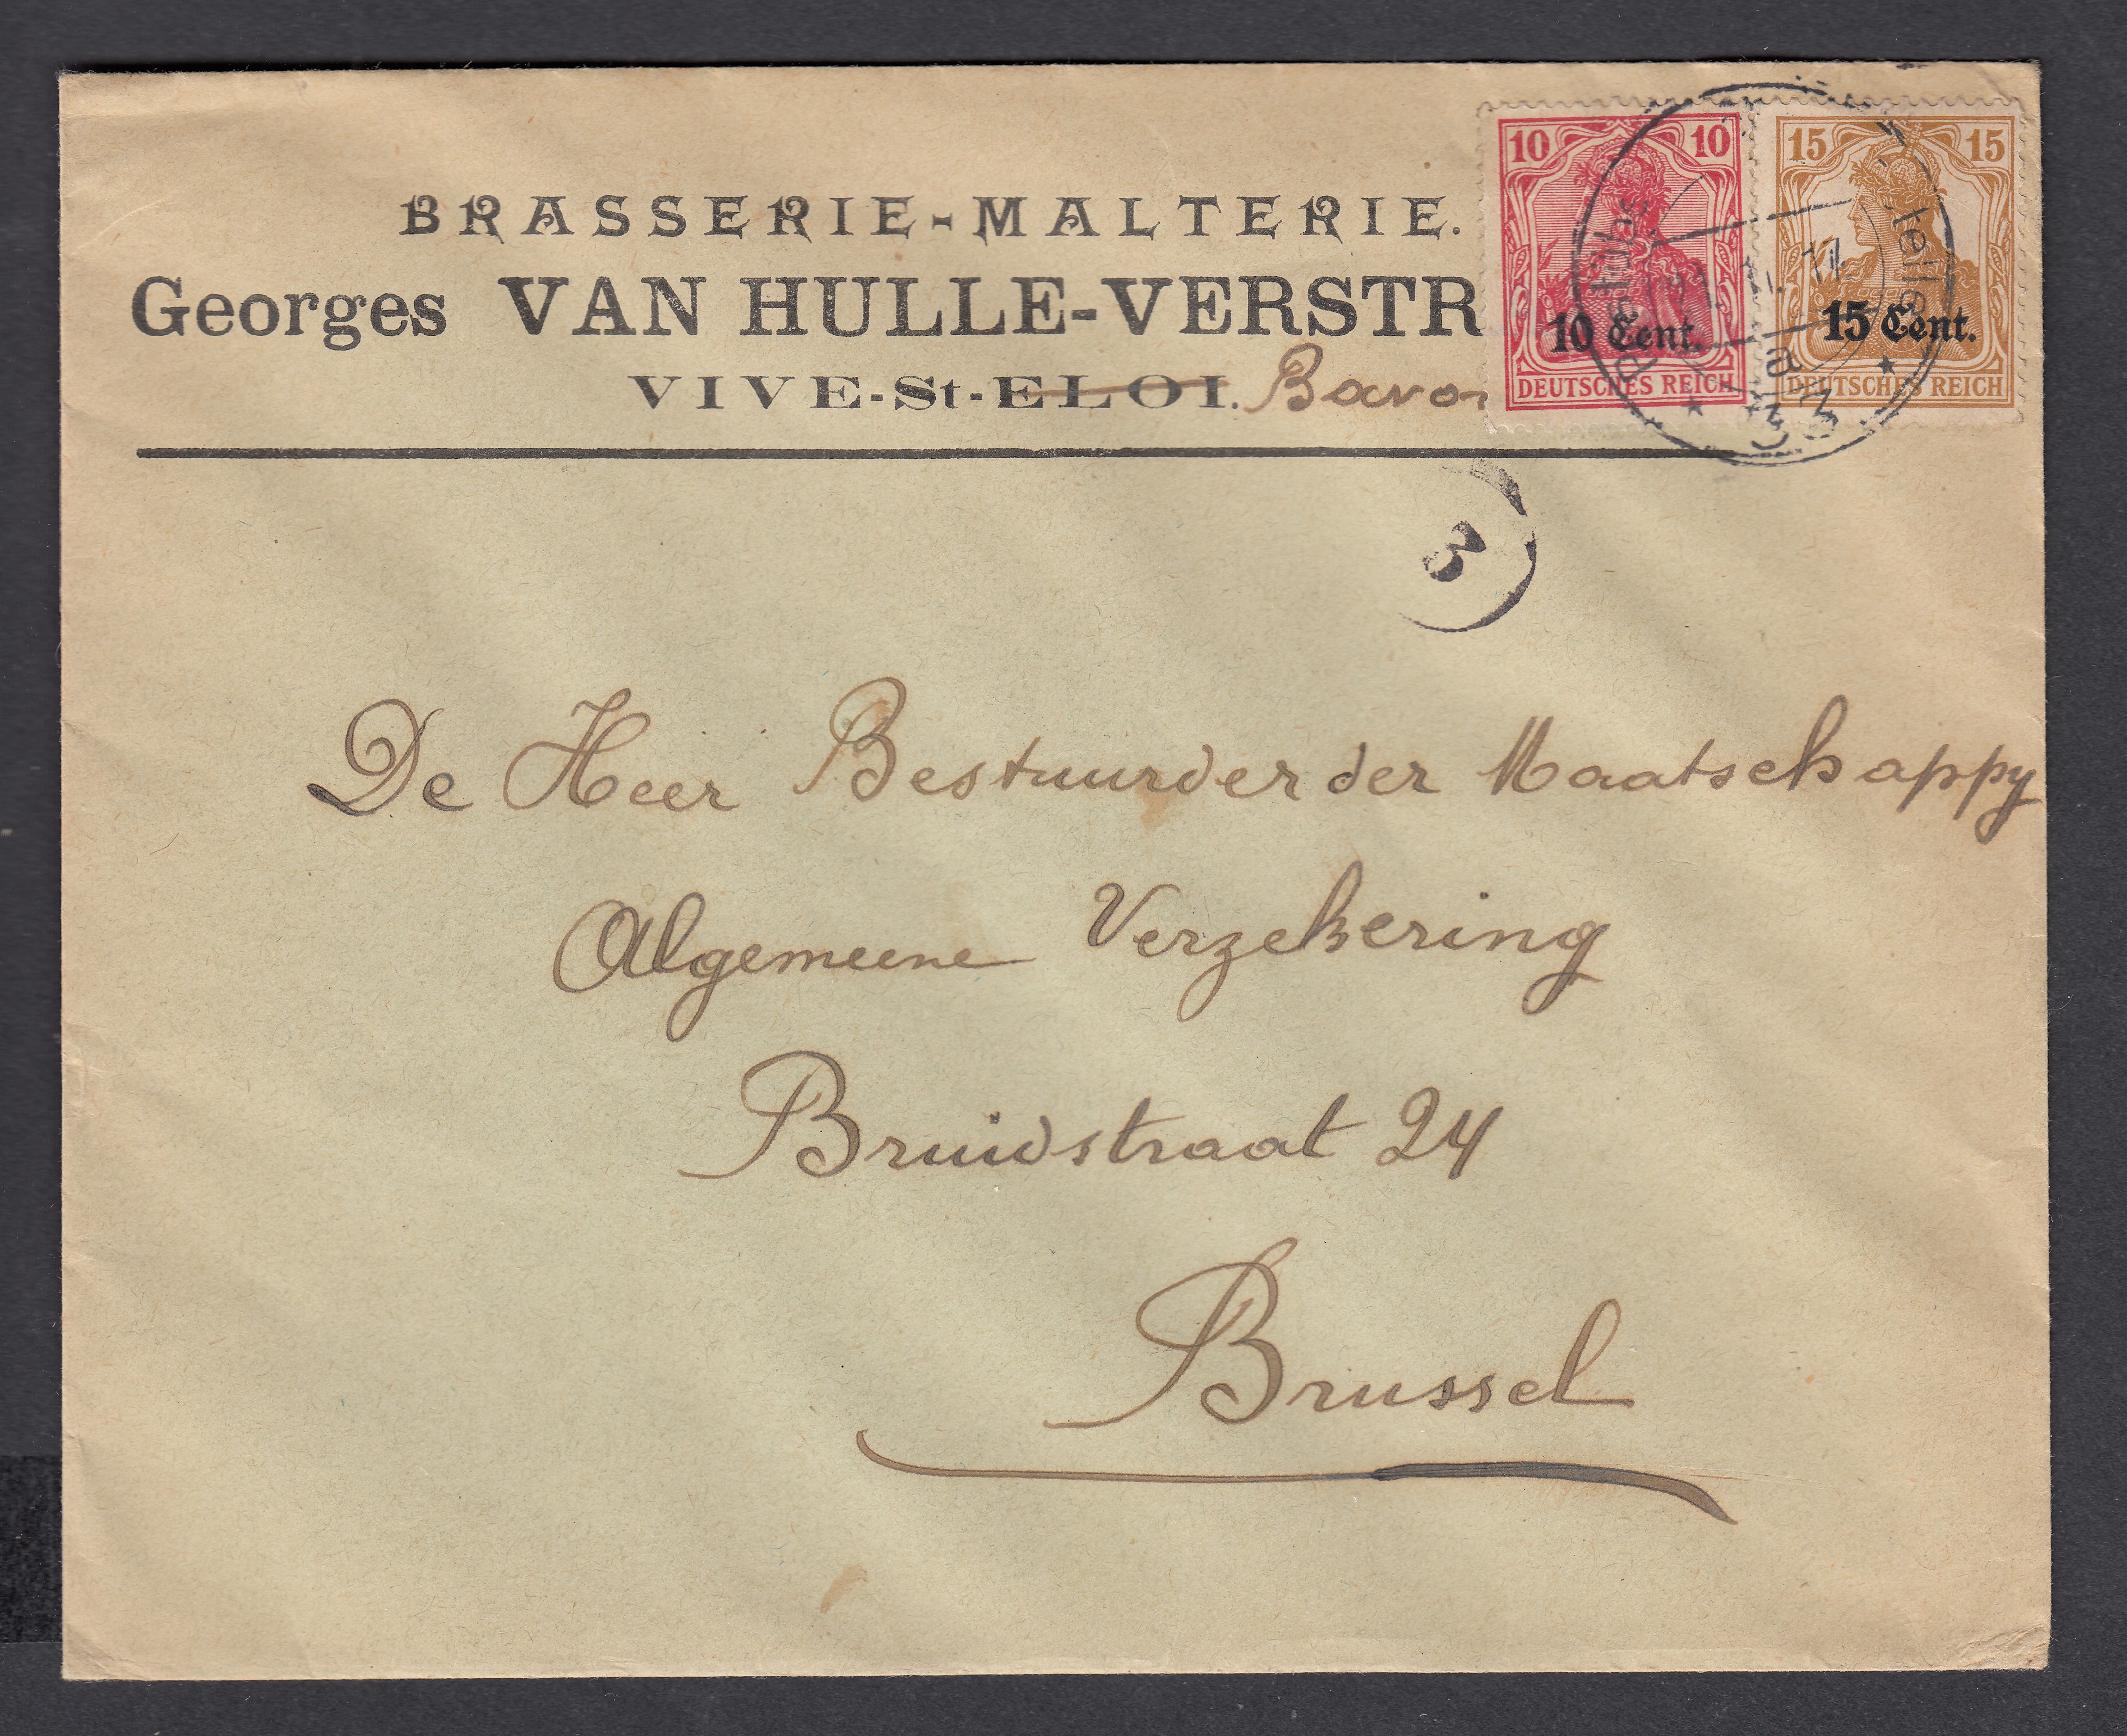 BRASSERIE-MALTERIE.
Georges VAN HULLE-VERSTR
VIVE-St-ELOI. Bavo
10 10
10 Cent.
DEUTSCHES REICH
15 15
15 Cent.
DEUTSCHES REICH
3
De Heer Bestuurder der Maatschappy
Algemeene Verzekering
Bruidstraat 24
Brussel